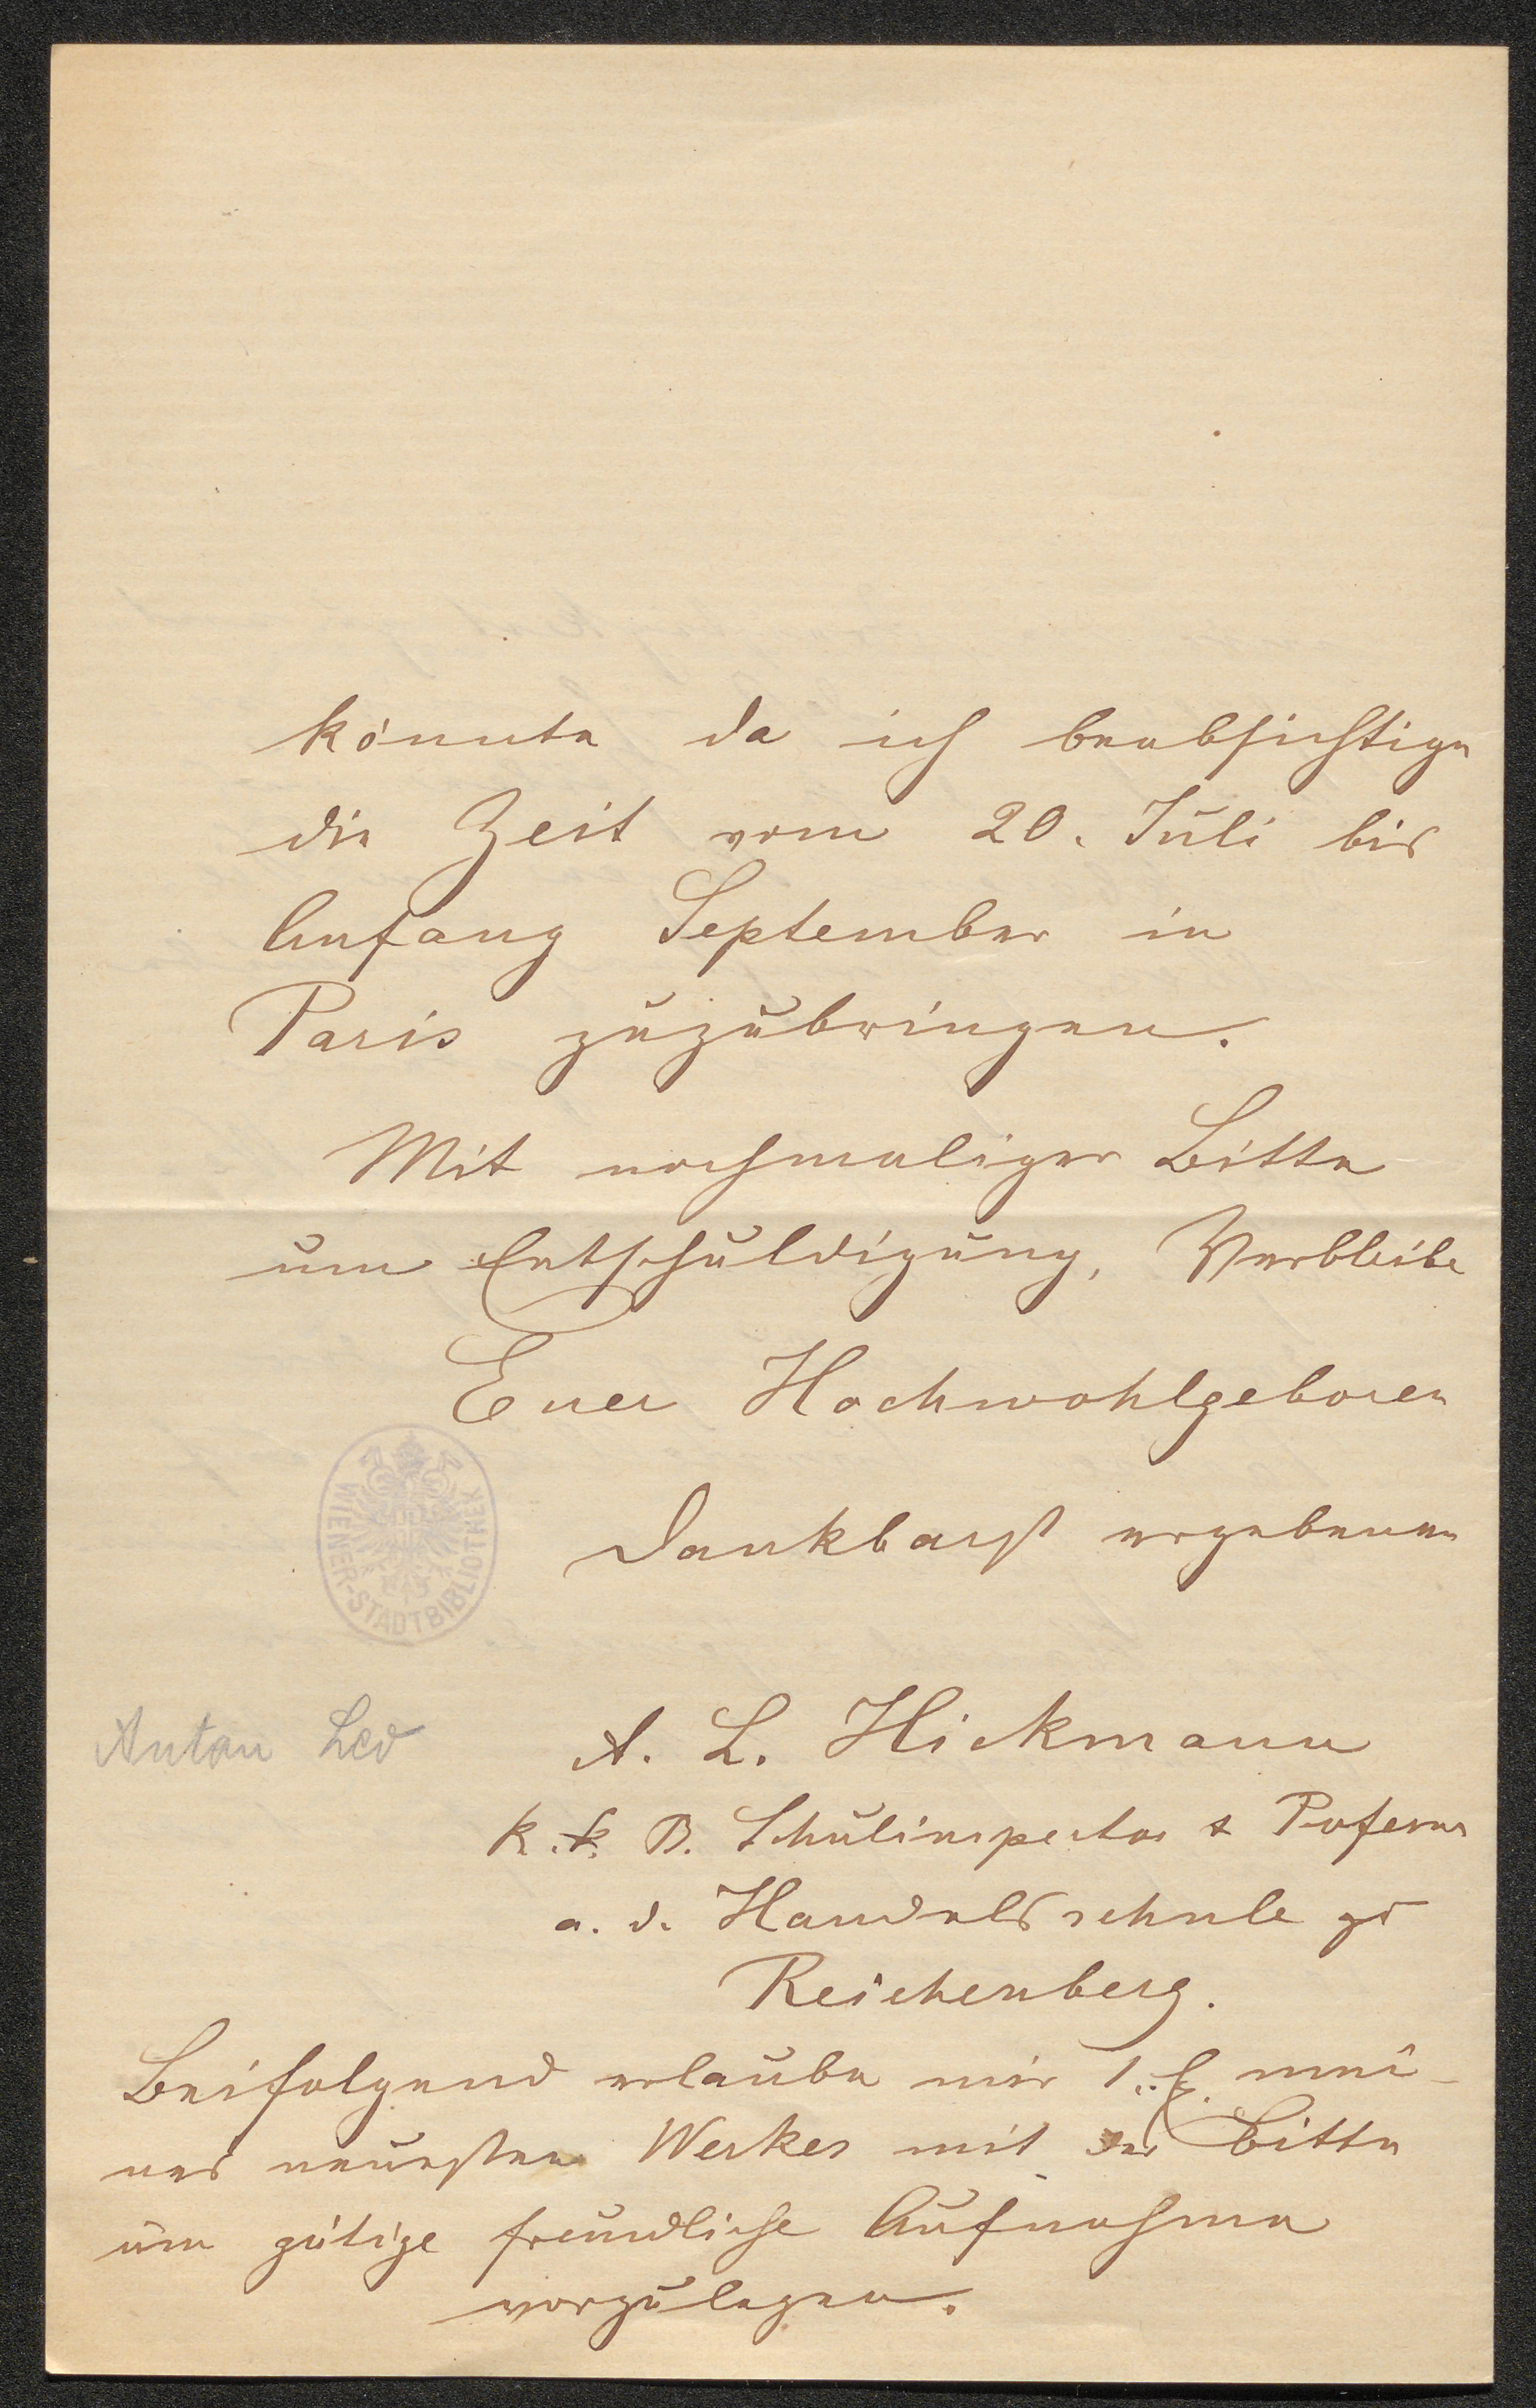 könnte da ich beabsichtige
die Zeit vom 20. Juli bis
Anfang September in
Paris zuzubringen.
Mit nochmaliger Bitte
um Entschuldigung, Verbleibe
Euer Hochwohlgeboren
dankbarst ergebener
WIENER-STADTBIBLIOTHEK
Anton Leo
A. L. Hickmann
k. k. B. Schulinspector & Professor
a. d. Handelsschule zu
Reichenberg.
Beifolgend erlaube mir 1. mei-
nes neuesten Werkes mit der Bitte
um gütige freundliche Aufnahme
vorzulegen.